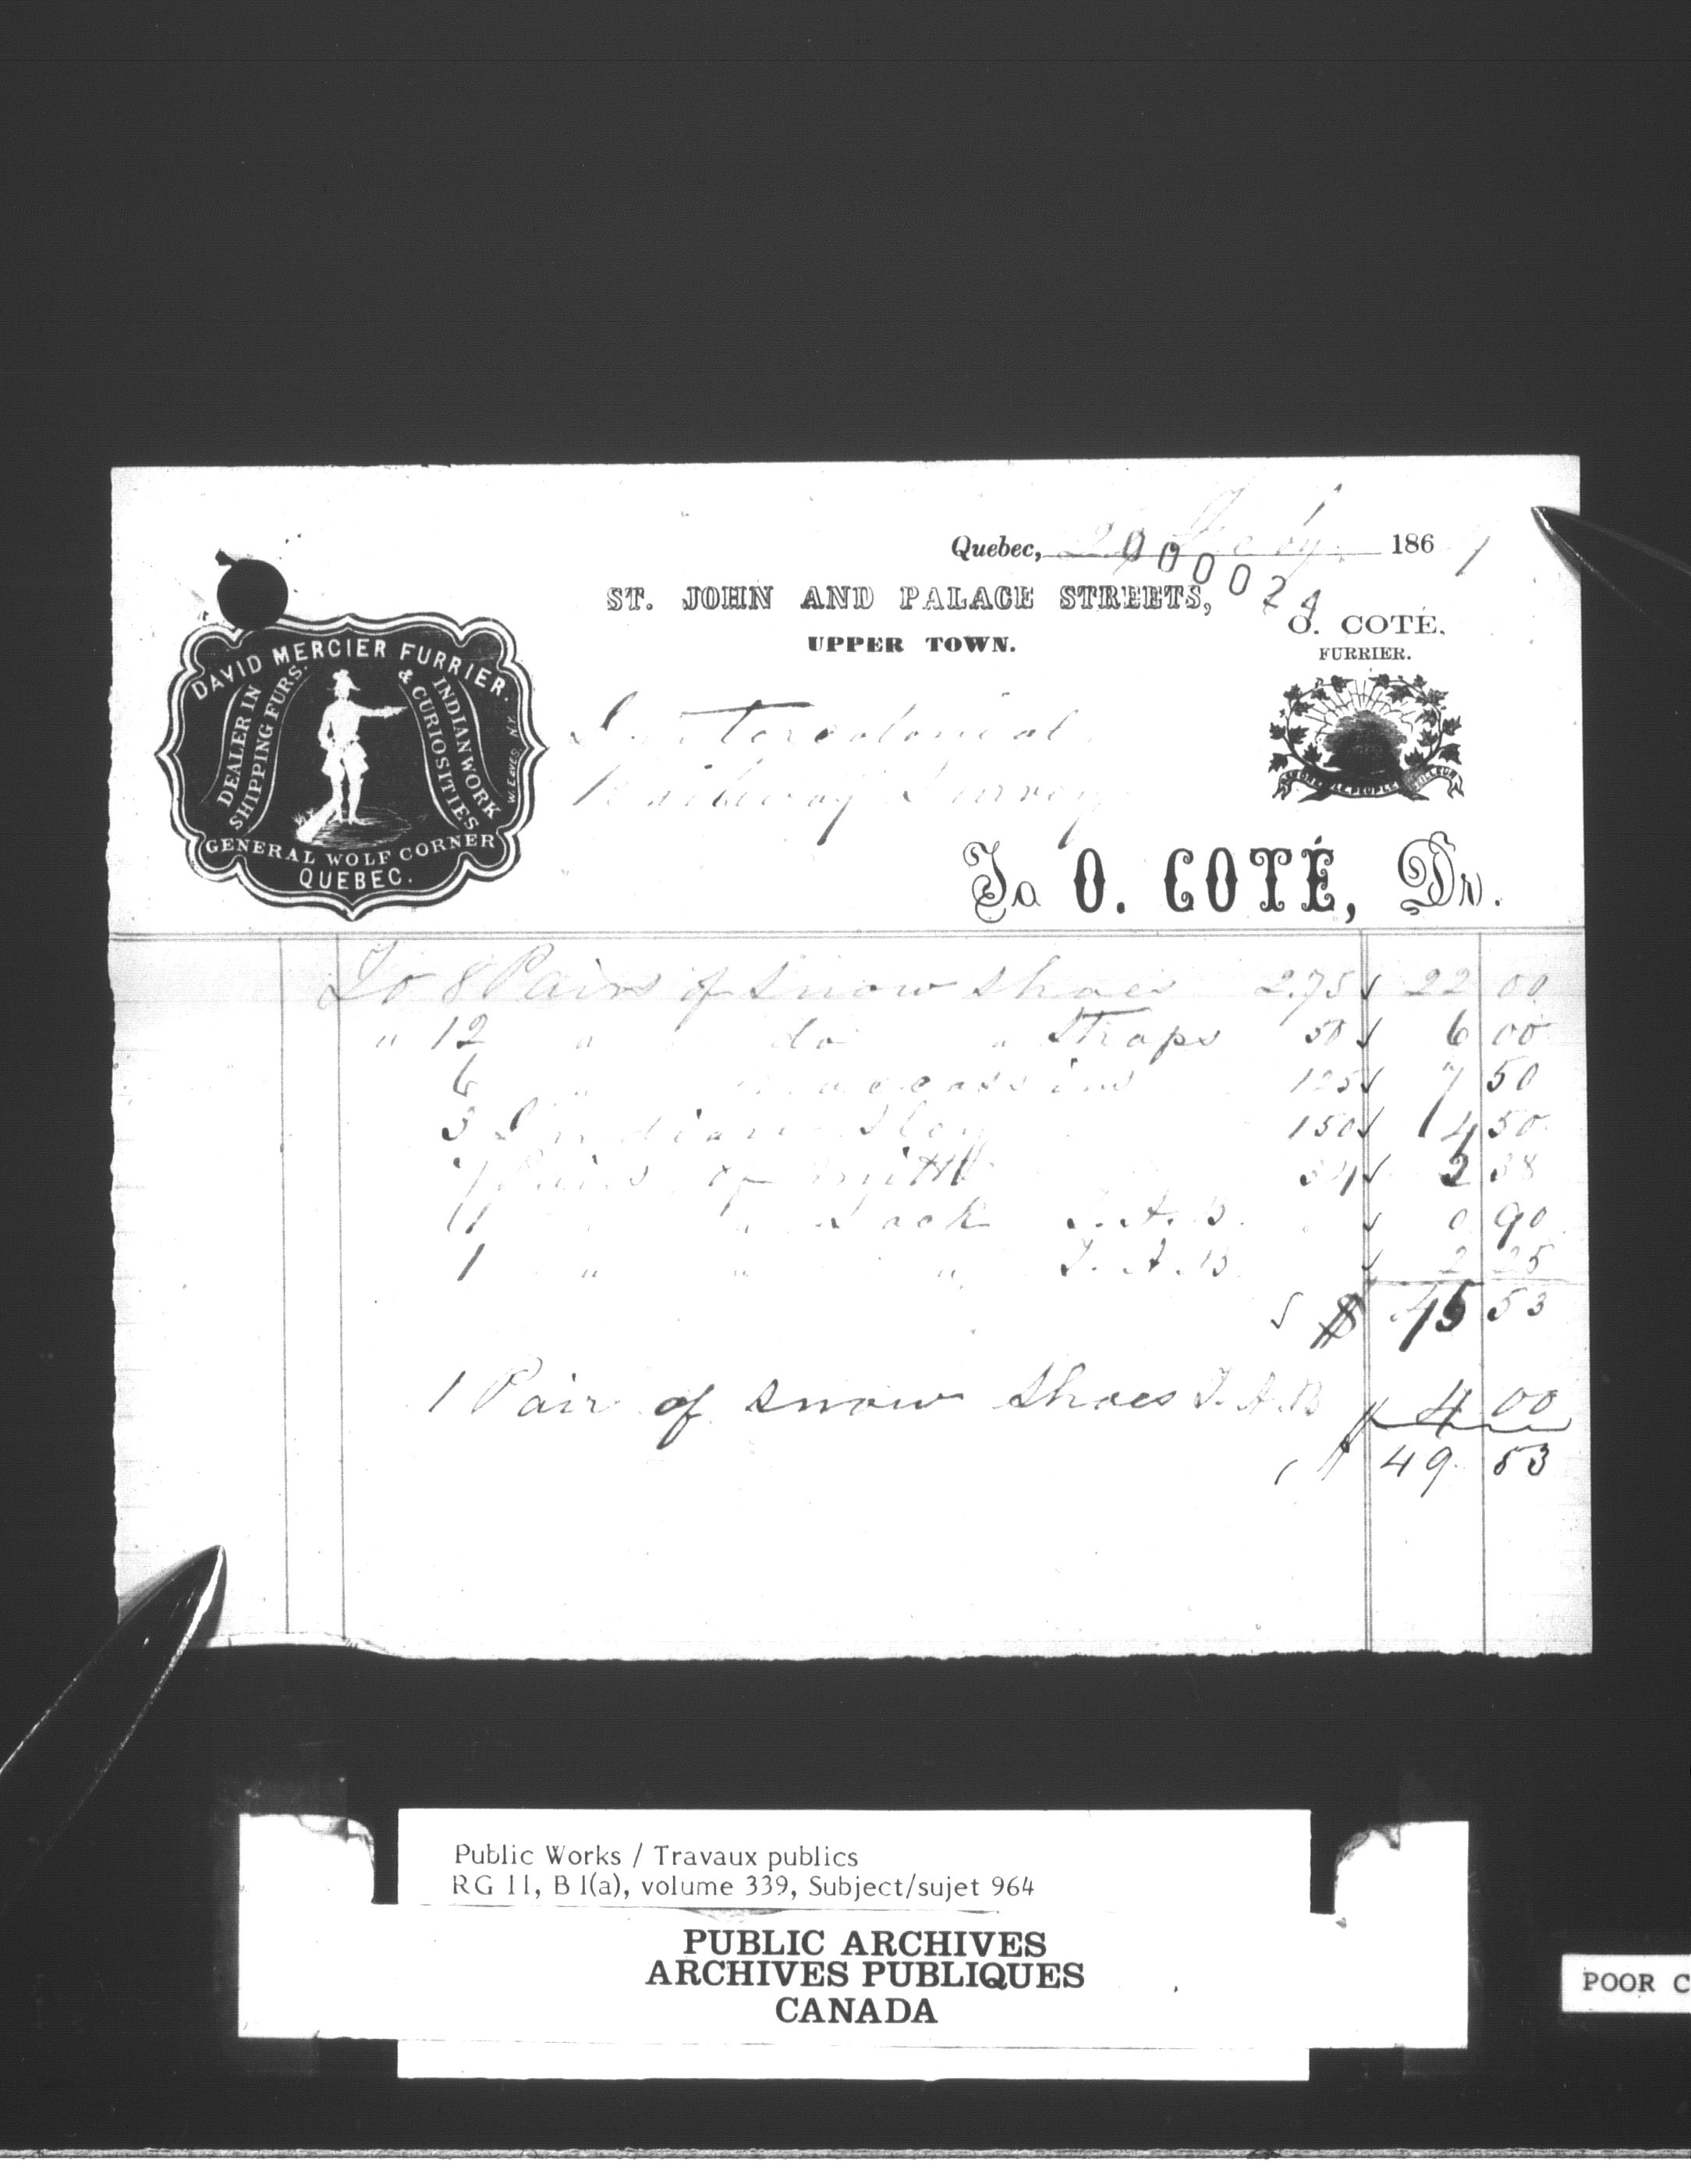 Quebec, 186
000024
ST. JOHN AND PALACE STREETS,
UPPER TOWN.
O. COTÉ,
FURRIER.
DAVID MERCIER FURRIER.
DEALER IN
SHIPPING FURS.
& CURIOSITIES
INDIAN WORK
W. EAVES N.Y.
GENERAL WOLF CORNER
QUEBEC.
Intercolonial
Railway Survey
To O. COTÉ, Dr.
To 8 Pairs of Snow Shoes 2.75 22 00
" 12 " do " Straps 50 6 00
6 " Maccassins 125 7 50
3 Indian 150 4 50
7 Pairs of Mitts 34 2 38
" Sock 0 90
1 " " " 2 25
$ 45 53
1 Pair of Snow Shoes 4 00
49 53
Public Works / Travaux publics
RG 11, B 1(a), volume 339, Subject/sujet 964
PUBLIC ARCHIVES
ARCHIVES PUBLIQUES
CANADA
POOR C